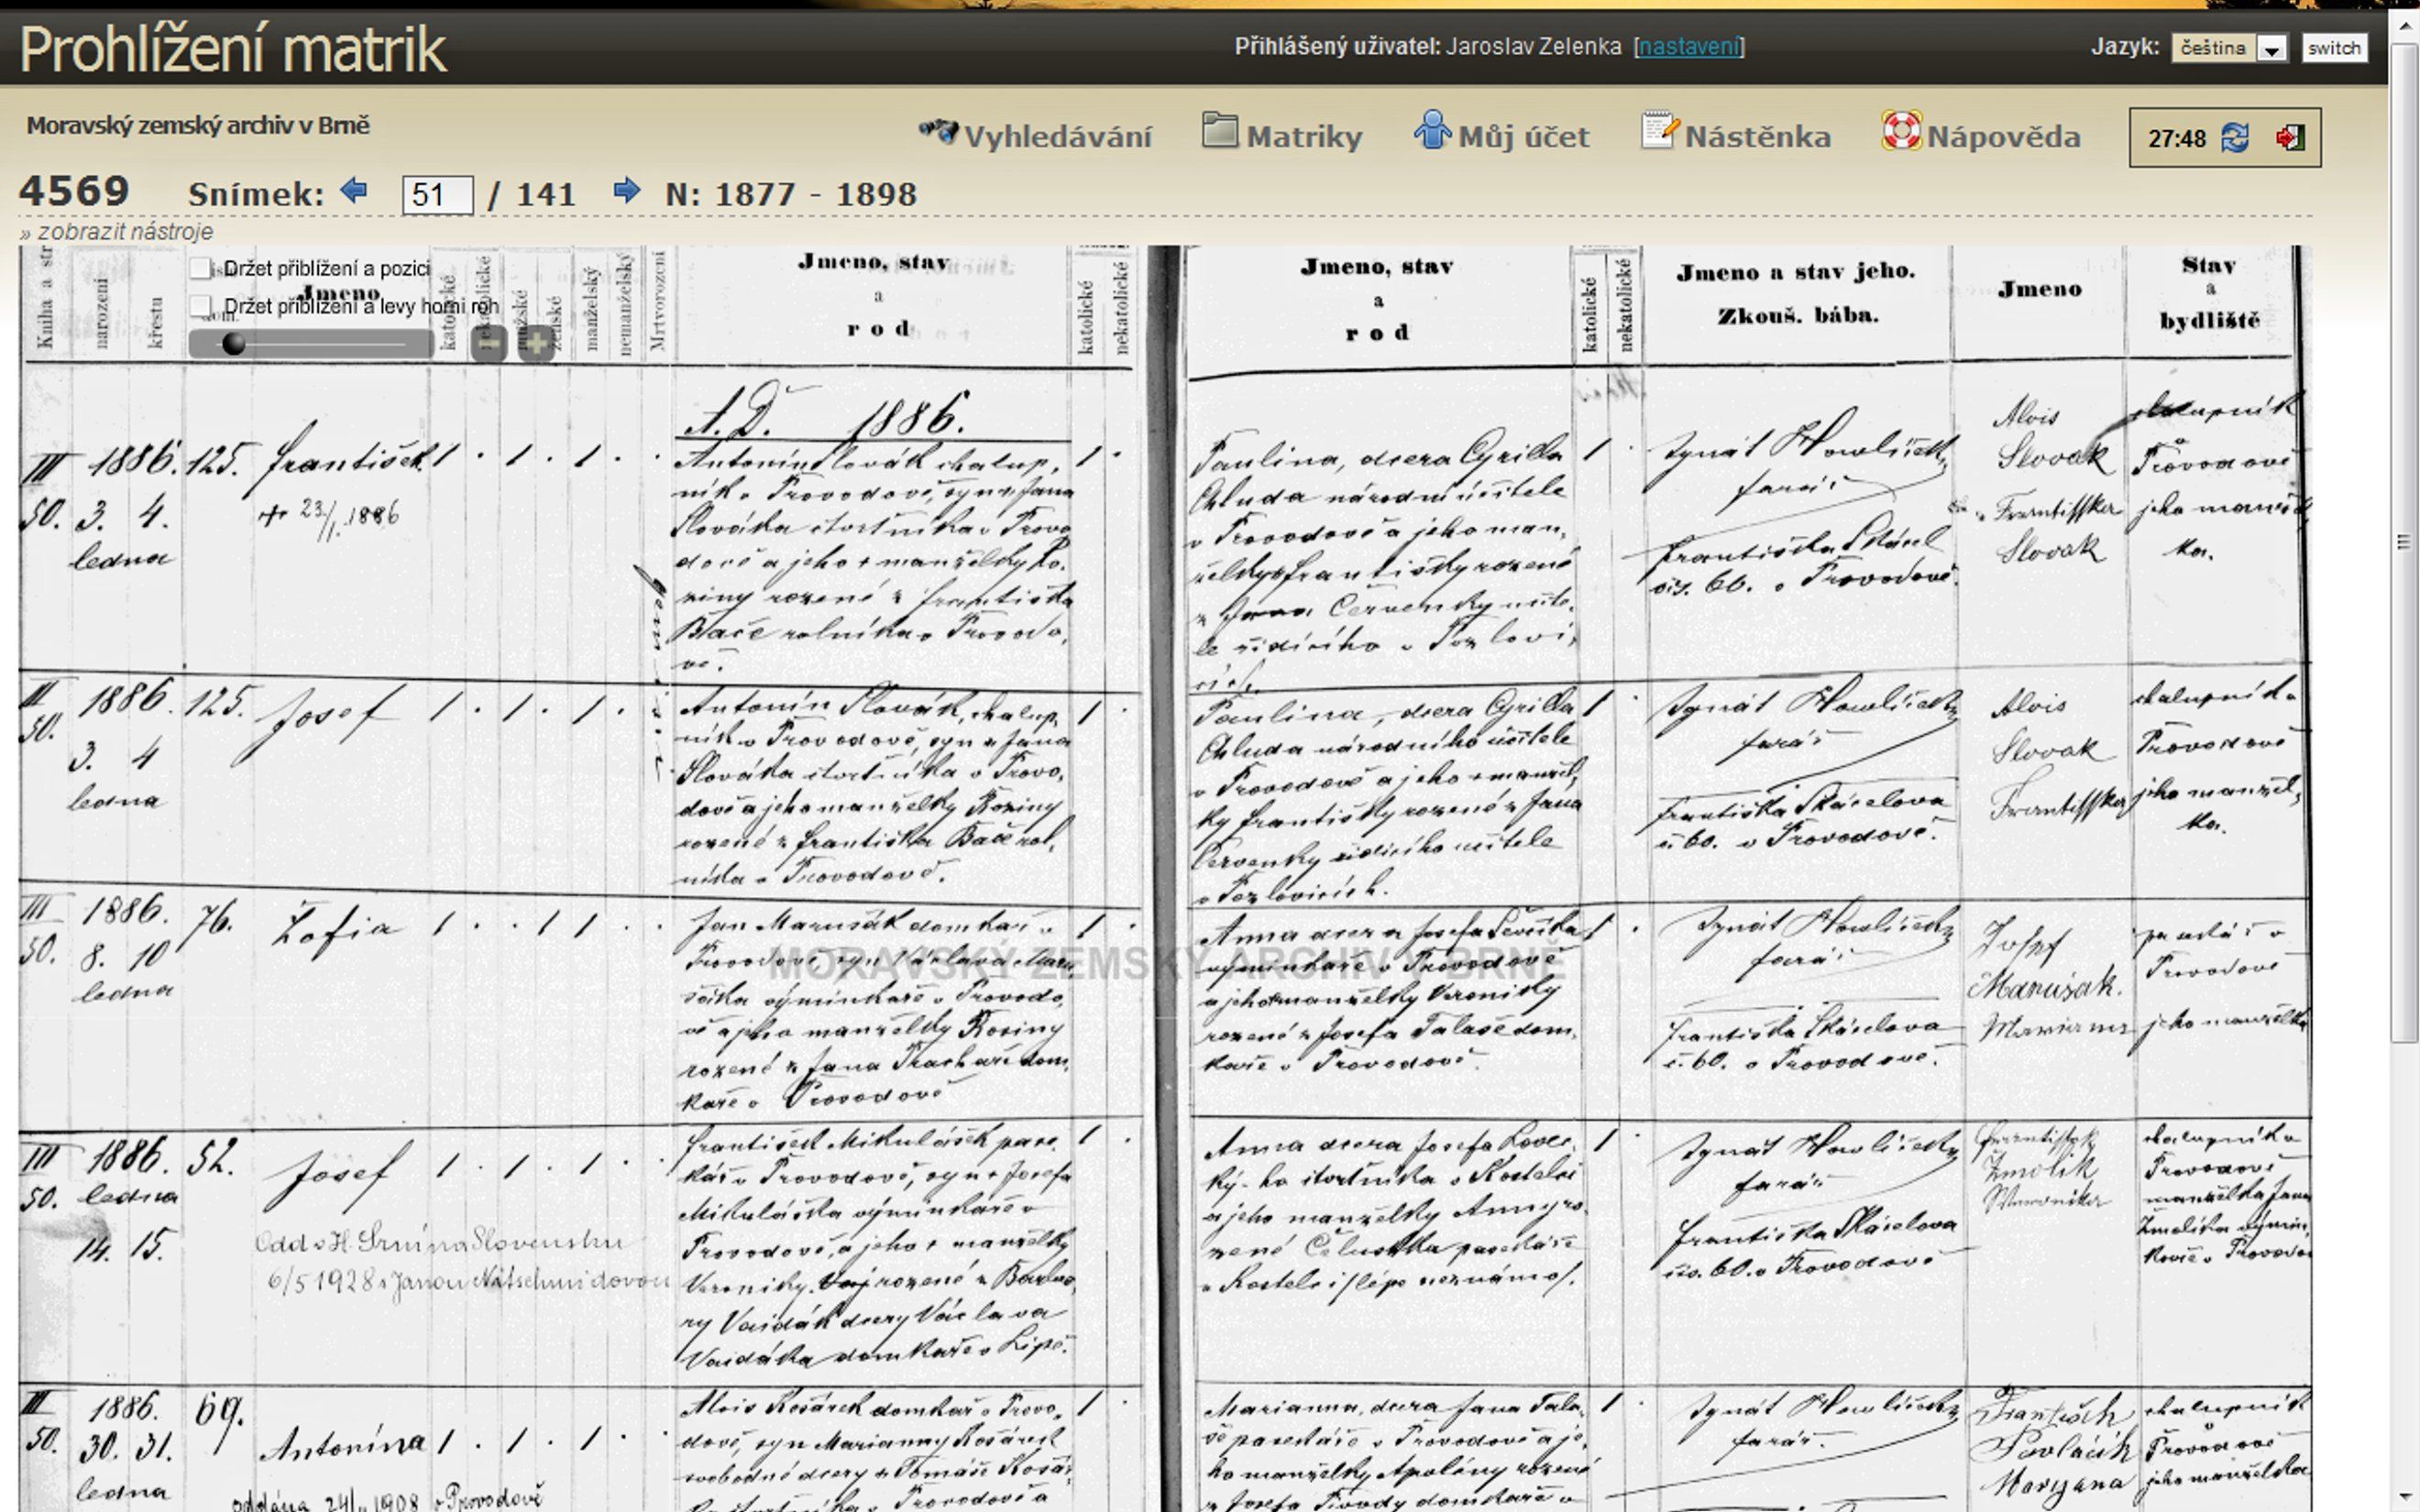 Prohlížení matrik
Přihlášený uživatel: Jaroslav Zelenka [nastavení]
Jazyk: čeština switch
Moravský zemský archiv v Brně
Vyhledávání Matriky Můj účet Nástěnka Nápověda 27:48
4569 Snímek: 51 / 141 N: 1877 - 1898
» zobrazit nástroje
Držet přiblížení a pozici
Držet přiblížení a levy horni roh
Kniha a str
narození
křestu
Jmeno
katolické
nekatolické
mužské
ženské
manželský
nemanželský
Mrtvorozeni
Jmeno, stav
a
rod
katolické
nekatolické
Jmeno, stav
a
rod
katolické
nekatolické
Jmeno a stav jeho.
Zkouš. bába.
Jmeno
Stav
a
bydliště
A.D. 1886.
III 1886. 125. František 1 . 1 . 1 . .
50. 3. 4.
ledna
+ 23/1. 1886
Antonín Slovák chalup,
ník v Provodově, syn Jana
Slováka čtvrtníka v Provo
dově a jeho + manželky Ro,
ziny rozené z Františka
Bače rolníka v Provodo,
vě.
1 .
Paulina, dcera Cyrilla
Chluda národní učitele
v Provodově a jeho man,
želky Františky rozené
z Jana Červenky učite,
le řídícího v Pozlovi,
cích.
1 .
Ignát Howlíček
farář
Františka Skácel
čís. 60. v Provodově.
Alois
Slovak
Frantisska
Slovak
chalupník
Provodově
jeho manžel
ka.
III 1886. 125. Josef 1 . 1 . 1 .
50.
3. 4
ledna
Antonín Slovák, chalup,
ník v Provodově, syn Jana
Slováka čtvrtníka v Provo,
dově a jeho manželky Roziny
rozené z Františka Bače rol,
níka v Provodově.
1 .
Paulina, dcera Cyrilla
Chluda národního učitele
v Provodově a jeho manžel,
ky Františky rozené z Jana
Červenky řídícího učitele
v Pozlovicích.
1 .
Ignát Howlíček
farář
Františka Skácelova
č. 60. v Provodově.
Alois
Slovak
Frantisska
chalupník v
Provodově
jeho manžel,
ka.
III 1886. 76. Žofia 1 . . 1 1 .
50. 8. 10
ledna
Jan Marušák domkař v
Provodově syn Václava Maru
šáka výminkaře v Provodo,
vě a jeho manželky Roziny
rozené z Jana dom,
kaře v Provodově
1 .
MORAVSKÝ ZEMSKÝ ARCHIV V BRNĚ
Anna dcera Josefa Ševčíka
výminkaře v Provodově
a jeho manželky Veroniky
rozené z Josefa Talaše dom,
kaře v Provodově.
1 .
Ignát Howlíček
farář
Františka Skácelova
č. 60. v Provodově.
Josef
Marušak.
Mariana
pasekář v
Provodově
jeho manželka
III 1886. 52. Josef 1 . 1 . 1 . .
50. ledna
14. 15.
Odd. v H. Srní na Slovensku
6/5 1928 s Janou Nitschmidovou
František Mikulášek pase,
kář v Provodově, syn + Josefa
Mikuláška výminkaře v
Provodově, a jeho + manželky
Veroniky rozené z Barbo,
ry Vaidák dcery Václava
Vaidáka domkaře v Lípě.
1 .
Anna dcera Josefa
ký- ho čtvrtníka v Kostelci
a jeho manželky Anny ro,
zené pasekáře
v Kostelci
1 .
Ignát Howlíček
farář
Františka Skácelova
čís. 60. v Provodově
Frantissek
Žmolik
Weronika
chalupník v
Provodově
manželka Jana
Žmolíka výmin,
kaře v Provodo
III 1886. 69.
50. 30. 31.
ledna
Antonína 1 . 1 . 1 . .
oddána 24/ 1908 v Provodově
Alois Košárek domkař v Provo,
dově, syn Marianny Košárek
svobodné dcery z Tomáše Košár
čtvrtníka v Provodově a
1 .
Marianna, dcera Jana Tala,
še pasekáře v Provodově a je,
ho manželky Apolény rozené
z Josefa domkaře v
1 .
Ignát Howlíček
farář.
František
Pavlačik
Maryana
chalupník
Provodově
jeho manželka